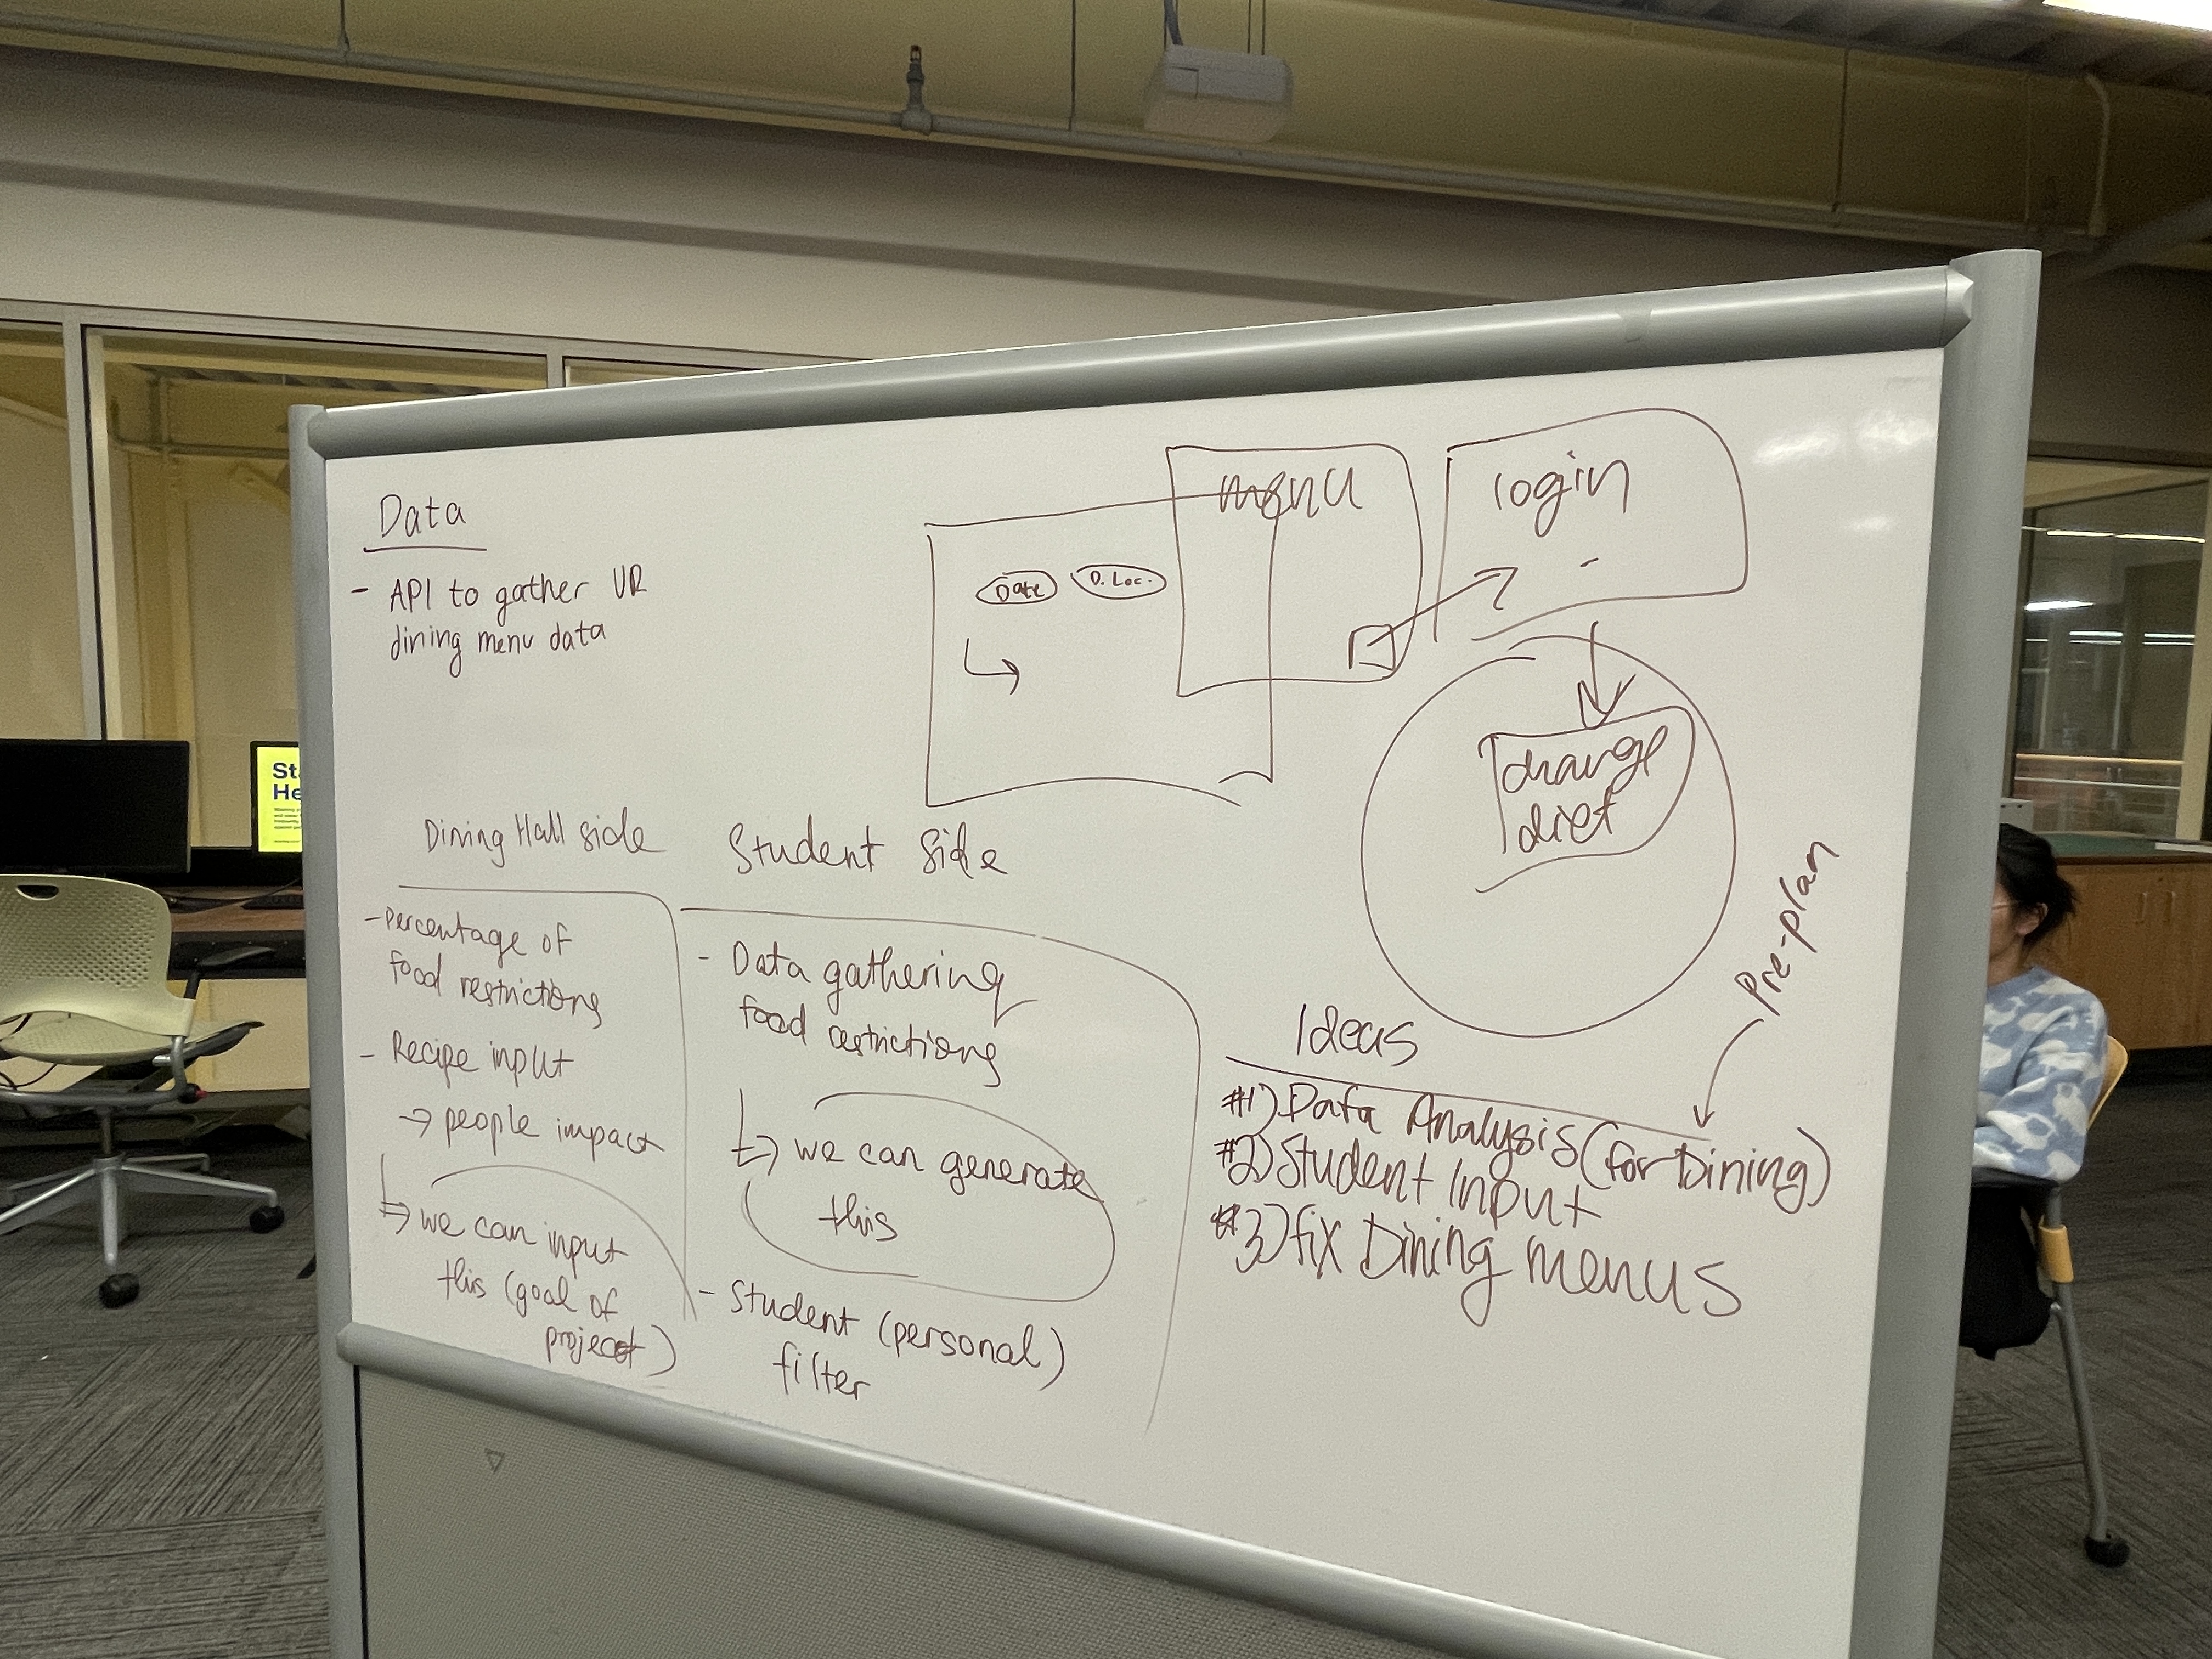 Data
- API to gather UR
dining menu data
menu
login
Date
D. Loc.
change
diet
Dining Hall side
- Percentage of
food restrictions
- Recipe input
→ people impact
↳ we can input
this (goal of
project)
Student Side
- Data gathering
food restrictions
↳ we can generate
this
- Student (personal)
filter
Pre-plan
Ideas
#1) Data Analysis (for Dining)
#2) Student Input
#3) fix Dining menus
St
He